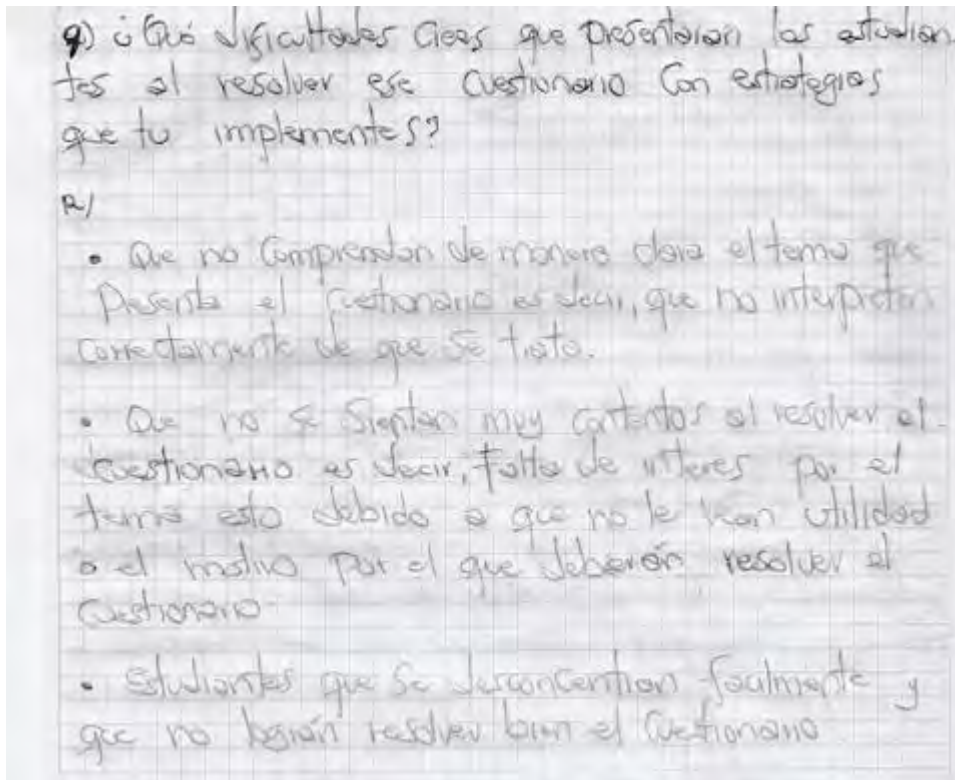 9) ¿Qué dificultades crees que presentarían los estudian
tes al resolver ese cuestionario con estrategias
que tu implementes?
R/
• Que no comprendan de manera clara el tema que
presenta el cuestionario es decir, que no interpreten
correctamente de que se trata.
• Que no se sientan muy contentos al resolver el
cuestionario es decir, falta de interes por el
tema esto debido a que no le vean utilidad
o el motivo por el que deberán resolver el
cuestionario
• Estudiantes que se desconcentran facilmente y
que no logran resolver bien el cuestionario